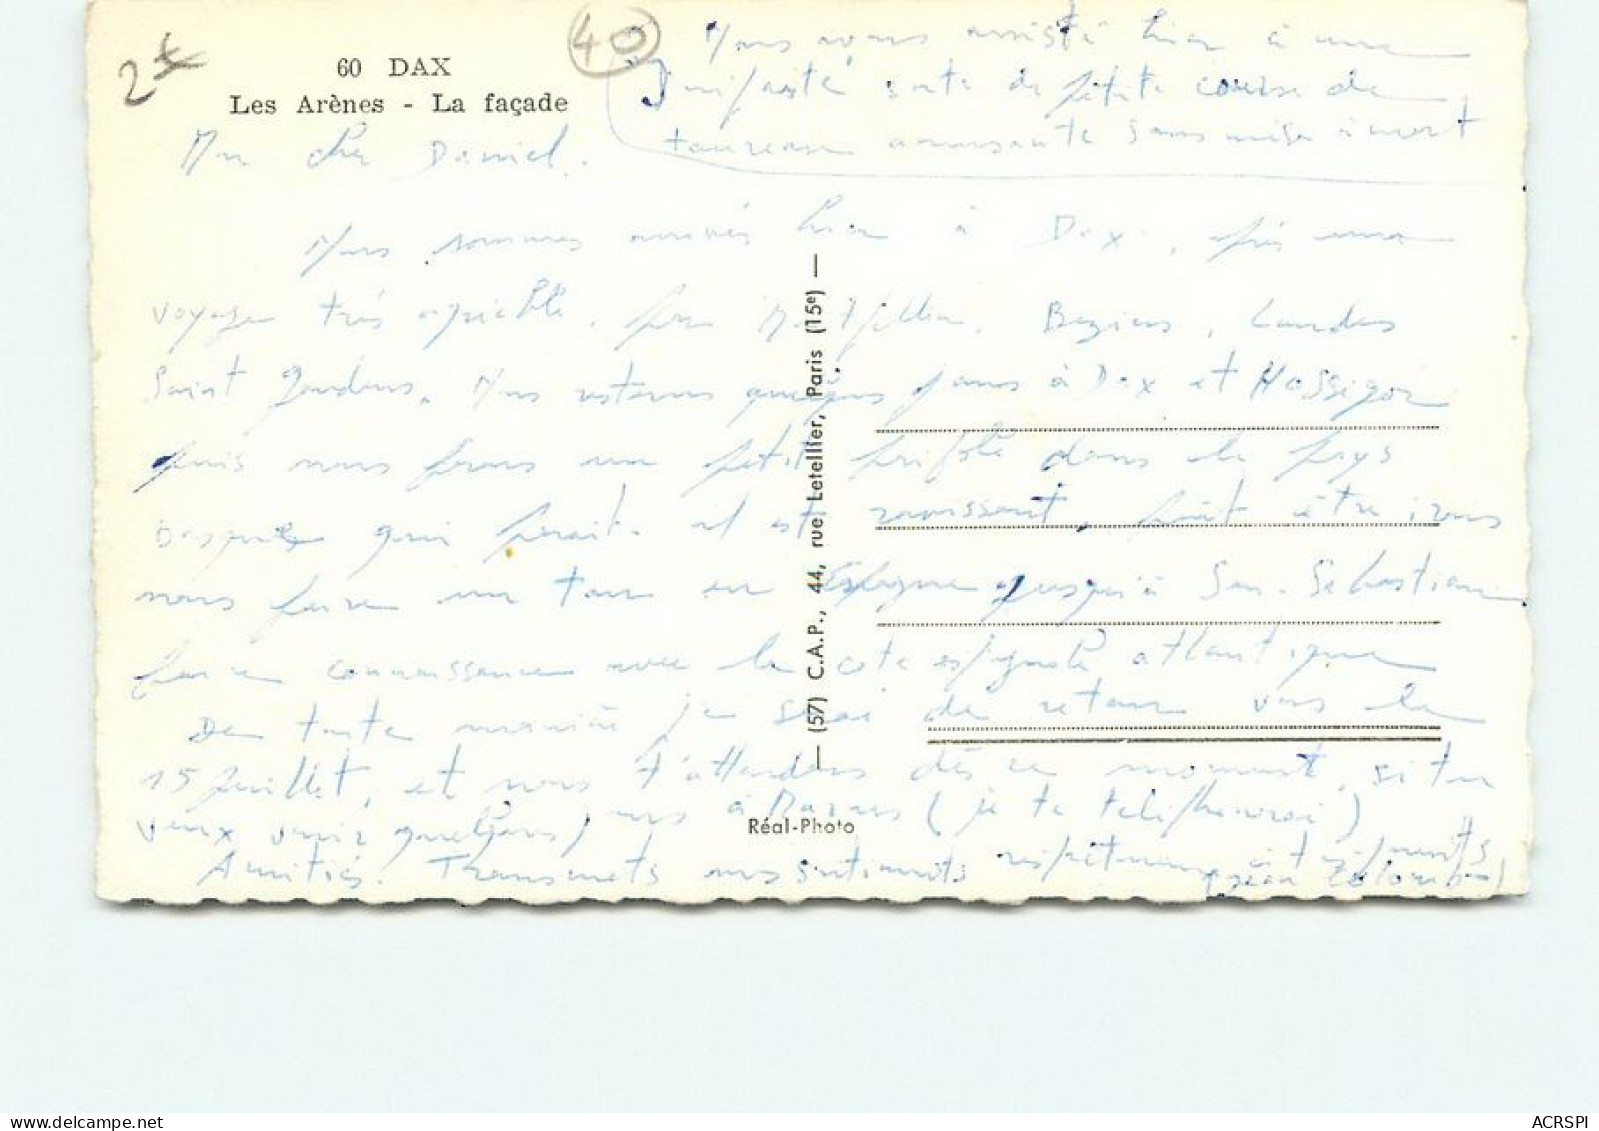 2
40
60 DAX
Les Arènes - La façade
Nous avons assisté hier à une
sorte de petite course de
taureau amusante sans mise à mort
Mon cher Daniel.
Nous sommes arrivés hier à Dax, après un
voyage très agréable, par Montpellier, Beziers,
Saint Gaudens. Nous resterons quelques jours à Dax et Hossegor
puis nous ferons un petit périple dans le pays
basque qui parait-il est ravissant, peut être irons
nous faire un tour en Espagne jusqu'à San-Sébastian
faire connaissance avec la cote espagnole atlantique
De toute manière je serai de retour vers le
15 juillet, et nous t'attendons dès ce moment, si tu
veux venir quelques jours à (je te telephonerai)
Amitiés. Transmets nos sentiments respectueux à tes parents
(Jean Colomb)
— (57) C.A.P., 44, rue Letellier, Paris (15e) —
Réal-Photo
ACRSPI